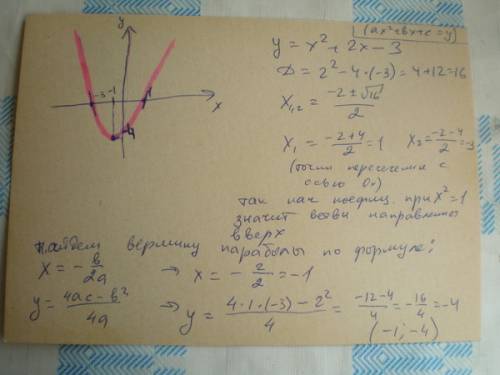 (ax²+bx+c=y)
y = x² + 2x - 3
D = 2² - 4·(-3) = 4+12=16
x₁,₂ = (-2 ± √16)/2
x₁ = (-2+4)/2 = 1 x₂ = (-2-4)/2 = -3
(точки пересечения с
осью Ox)
так как коэфиц. при x² = 1
значит ветви направлены
вверх
y
-3 -1 1
x
-4
Найдем вершину параболы по формуле:
x = -b/2a → x = -2/2 = -1
y = (4ac - b²)/4a → y = (4·1·(-3) - 2²)/4 = (-12-4)/4 = -16/4 = -4
(-1; -4)